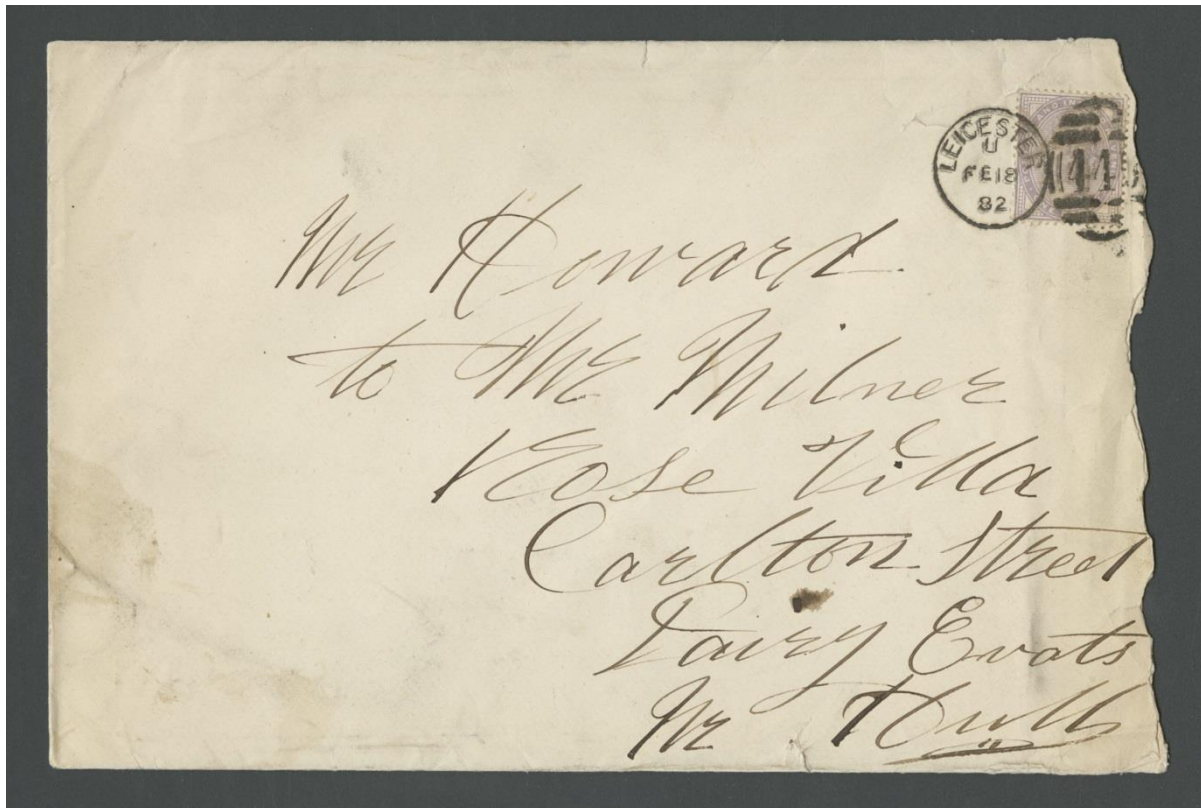 LEICESTER
U
FE 18
82
AND IN
Mr Howard
to Mr Milner
Rose Villa
Carlton Street
Dairy
Nr Hull